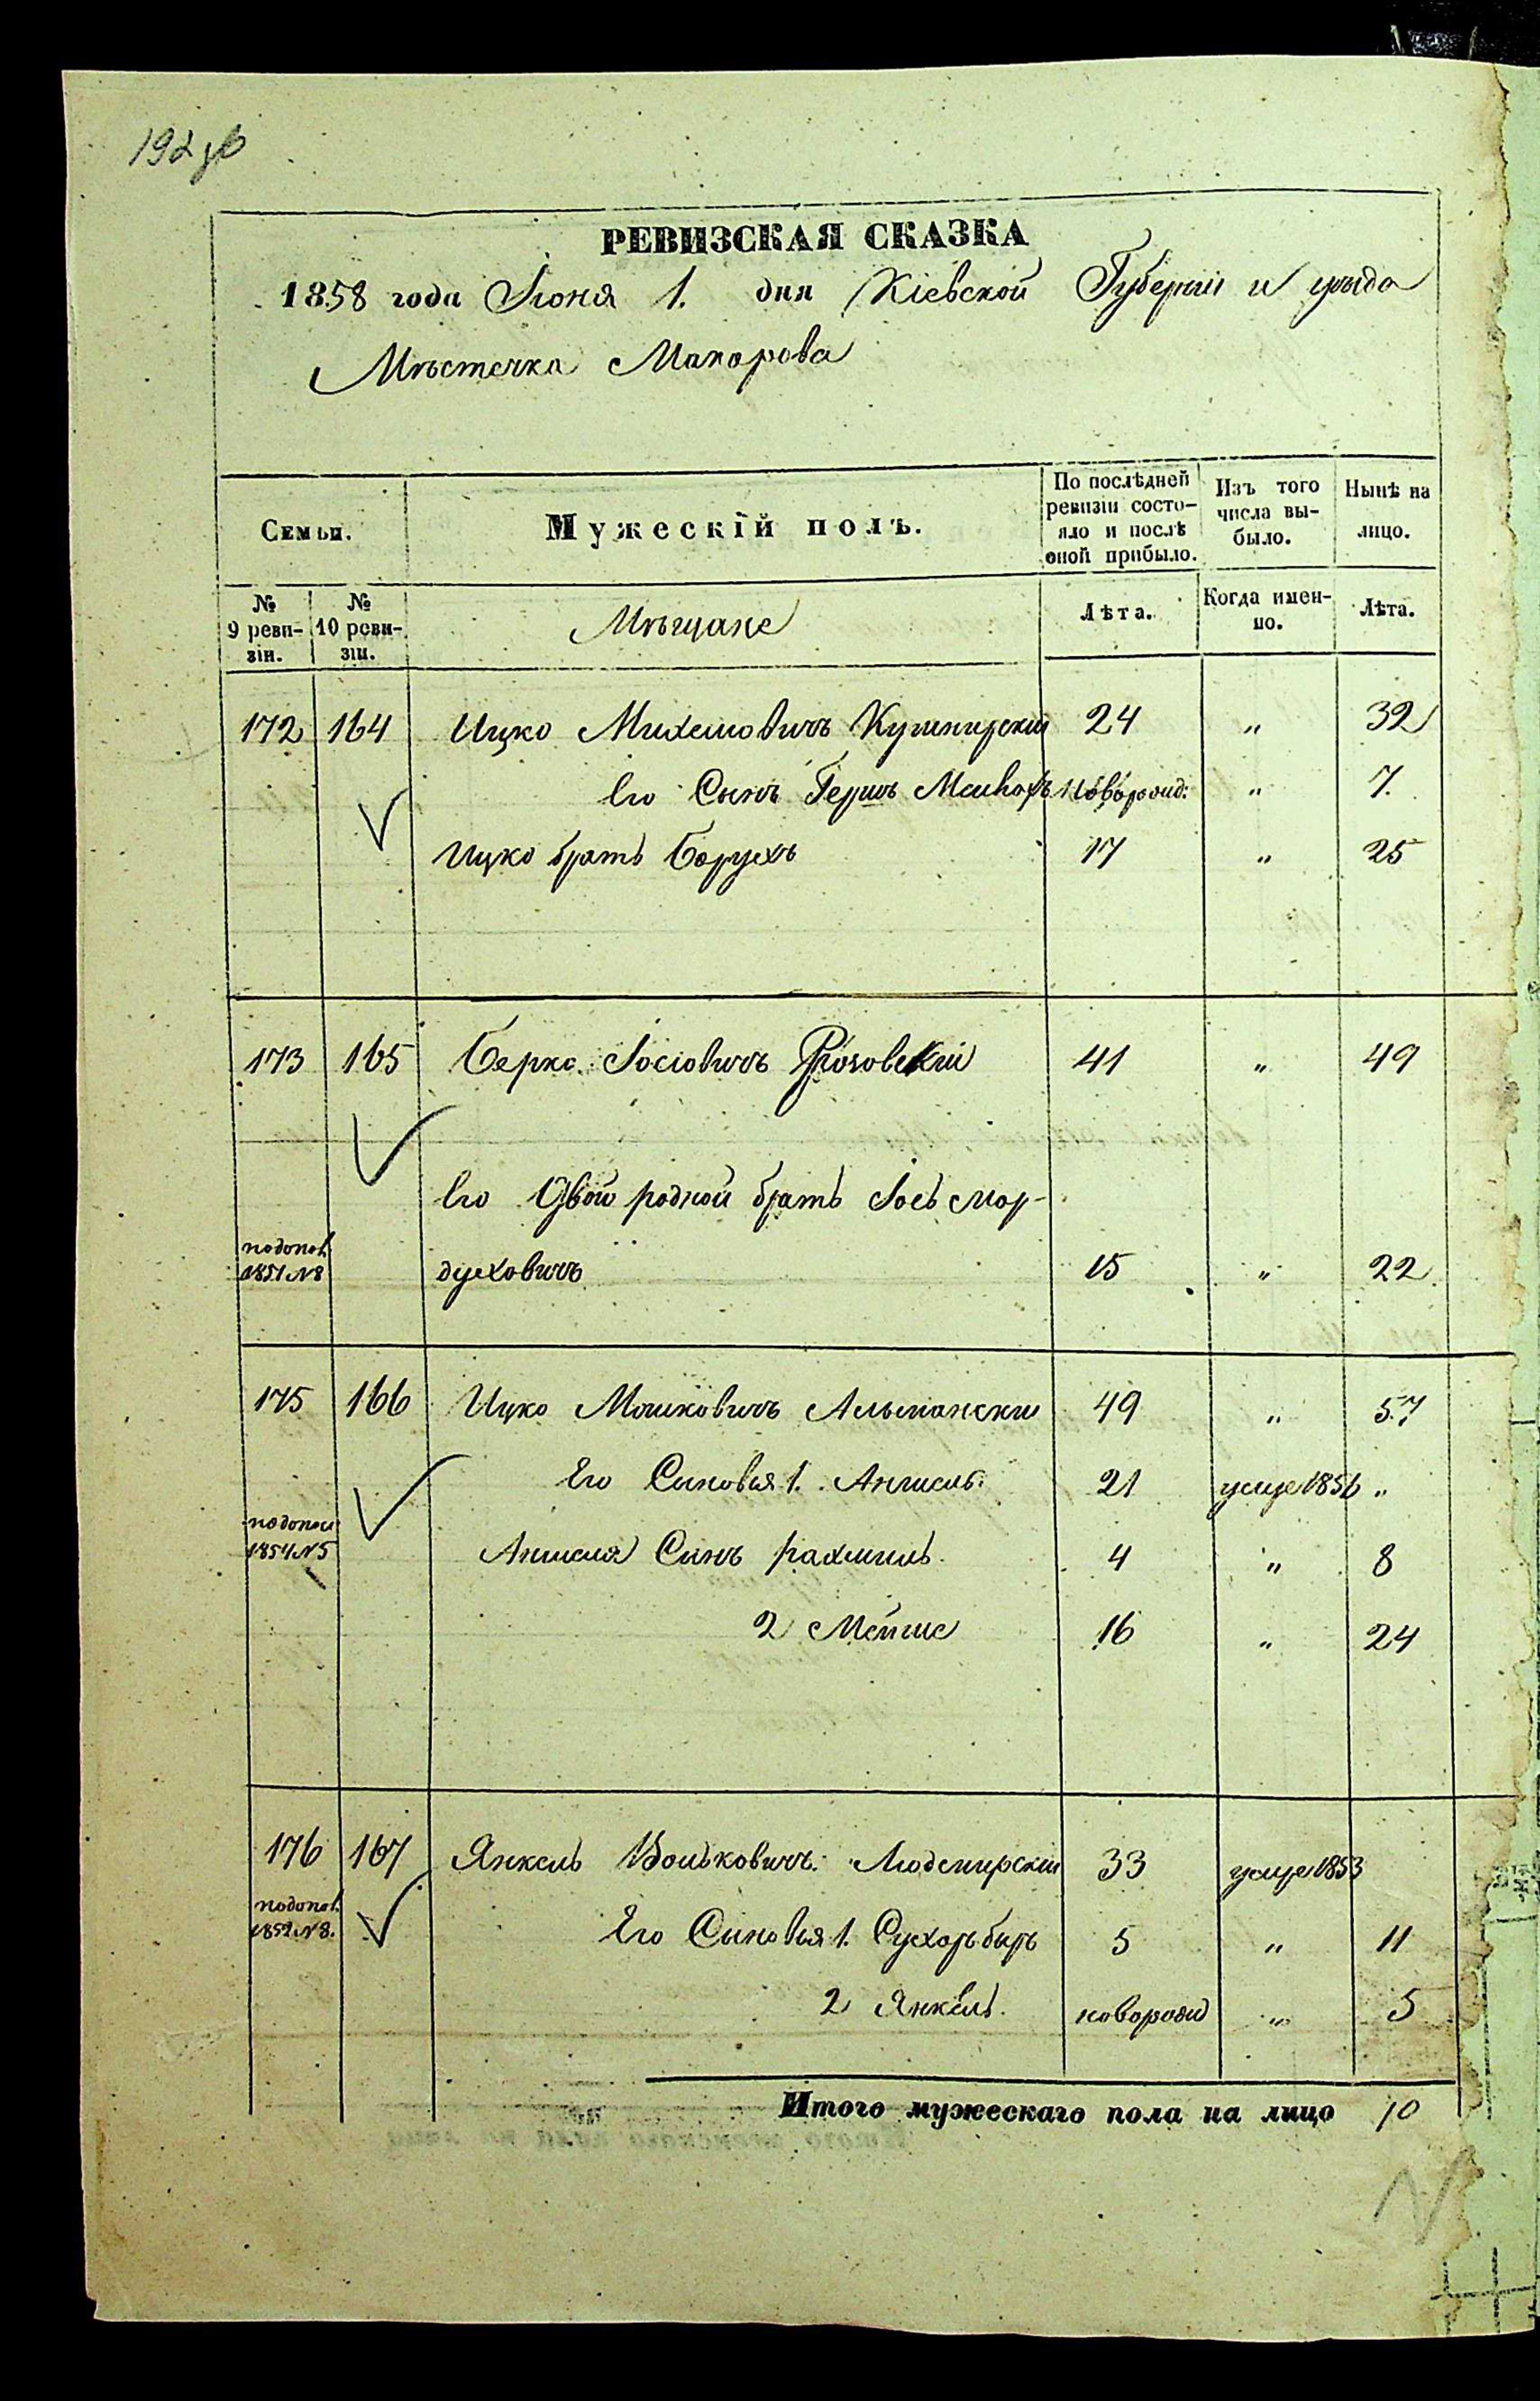 192 об
РЕВИЗСКАЯ СКАЗКА
1858 года Іюня 1. дня Кіевской Губерніи и уезда
Мѣстечка Макарова
Семьи.
Мужескій полъ.
По послѣдней ревизіи состо-
яло и послѣ
оной прибыло.
Изъ того
числа вы-
было.
Нынѣ на
лицо.
№
9 реви-
зіи.
№
10 реви-
зіи.
Мѣщане
Лѣта.
Когда имен-
но.
Лѣта.
172 164 Ицко 24 „ 32
Его Сынъ Гершъ новорожд: „ 7.
Ицко братъ Борухъ 17 „ 25
173 165 Берко Іосіовичъ 41 „ 49
Его Двоюродной братъ Іось Мор-
подопол. 1851 №8 духовичъ 15 „ 22
175 166 Ицко Мошковичъ 49 „ 57
Его Синовья 1. Аншель. 21 умре 1856 „
1854 №5 Аншеля Синъ рахмиль. 4 „ 8
2 16 „ 24
176 167 Янкель Вольковичъ. 33 умре 1853
подопол. 1852 №8. Его Синовья 1. 5 „ 11
2 Янкель. новорожд „ 5
Итого мужескаго пола на лицо 10